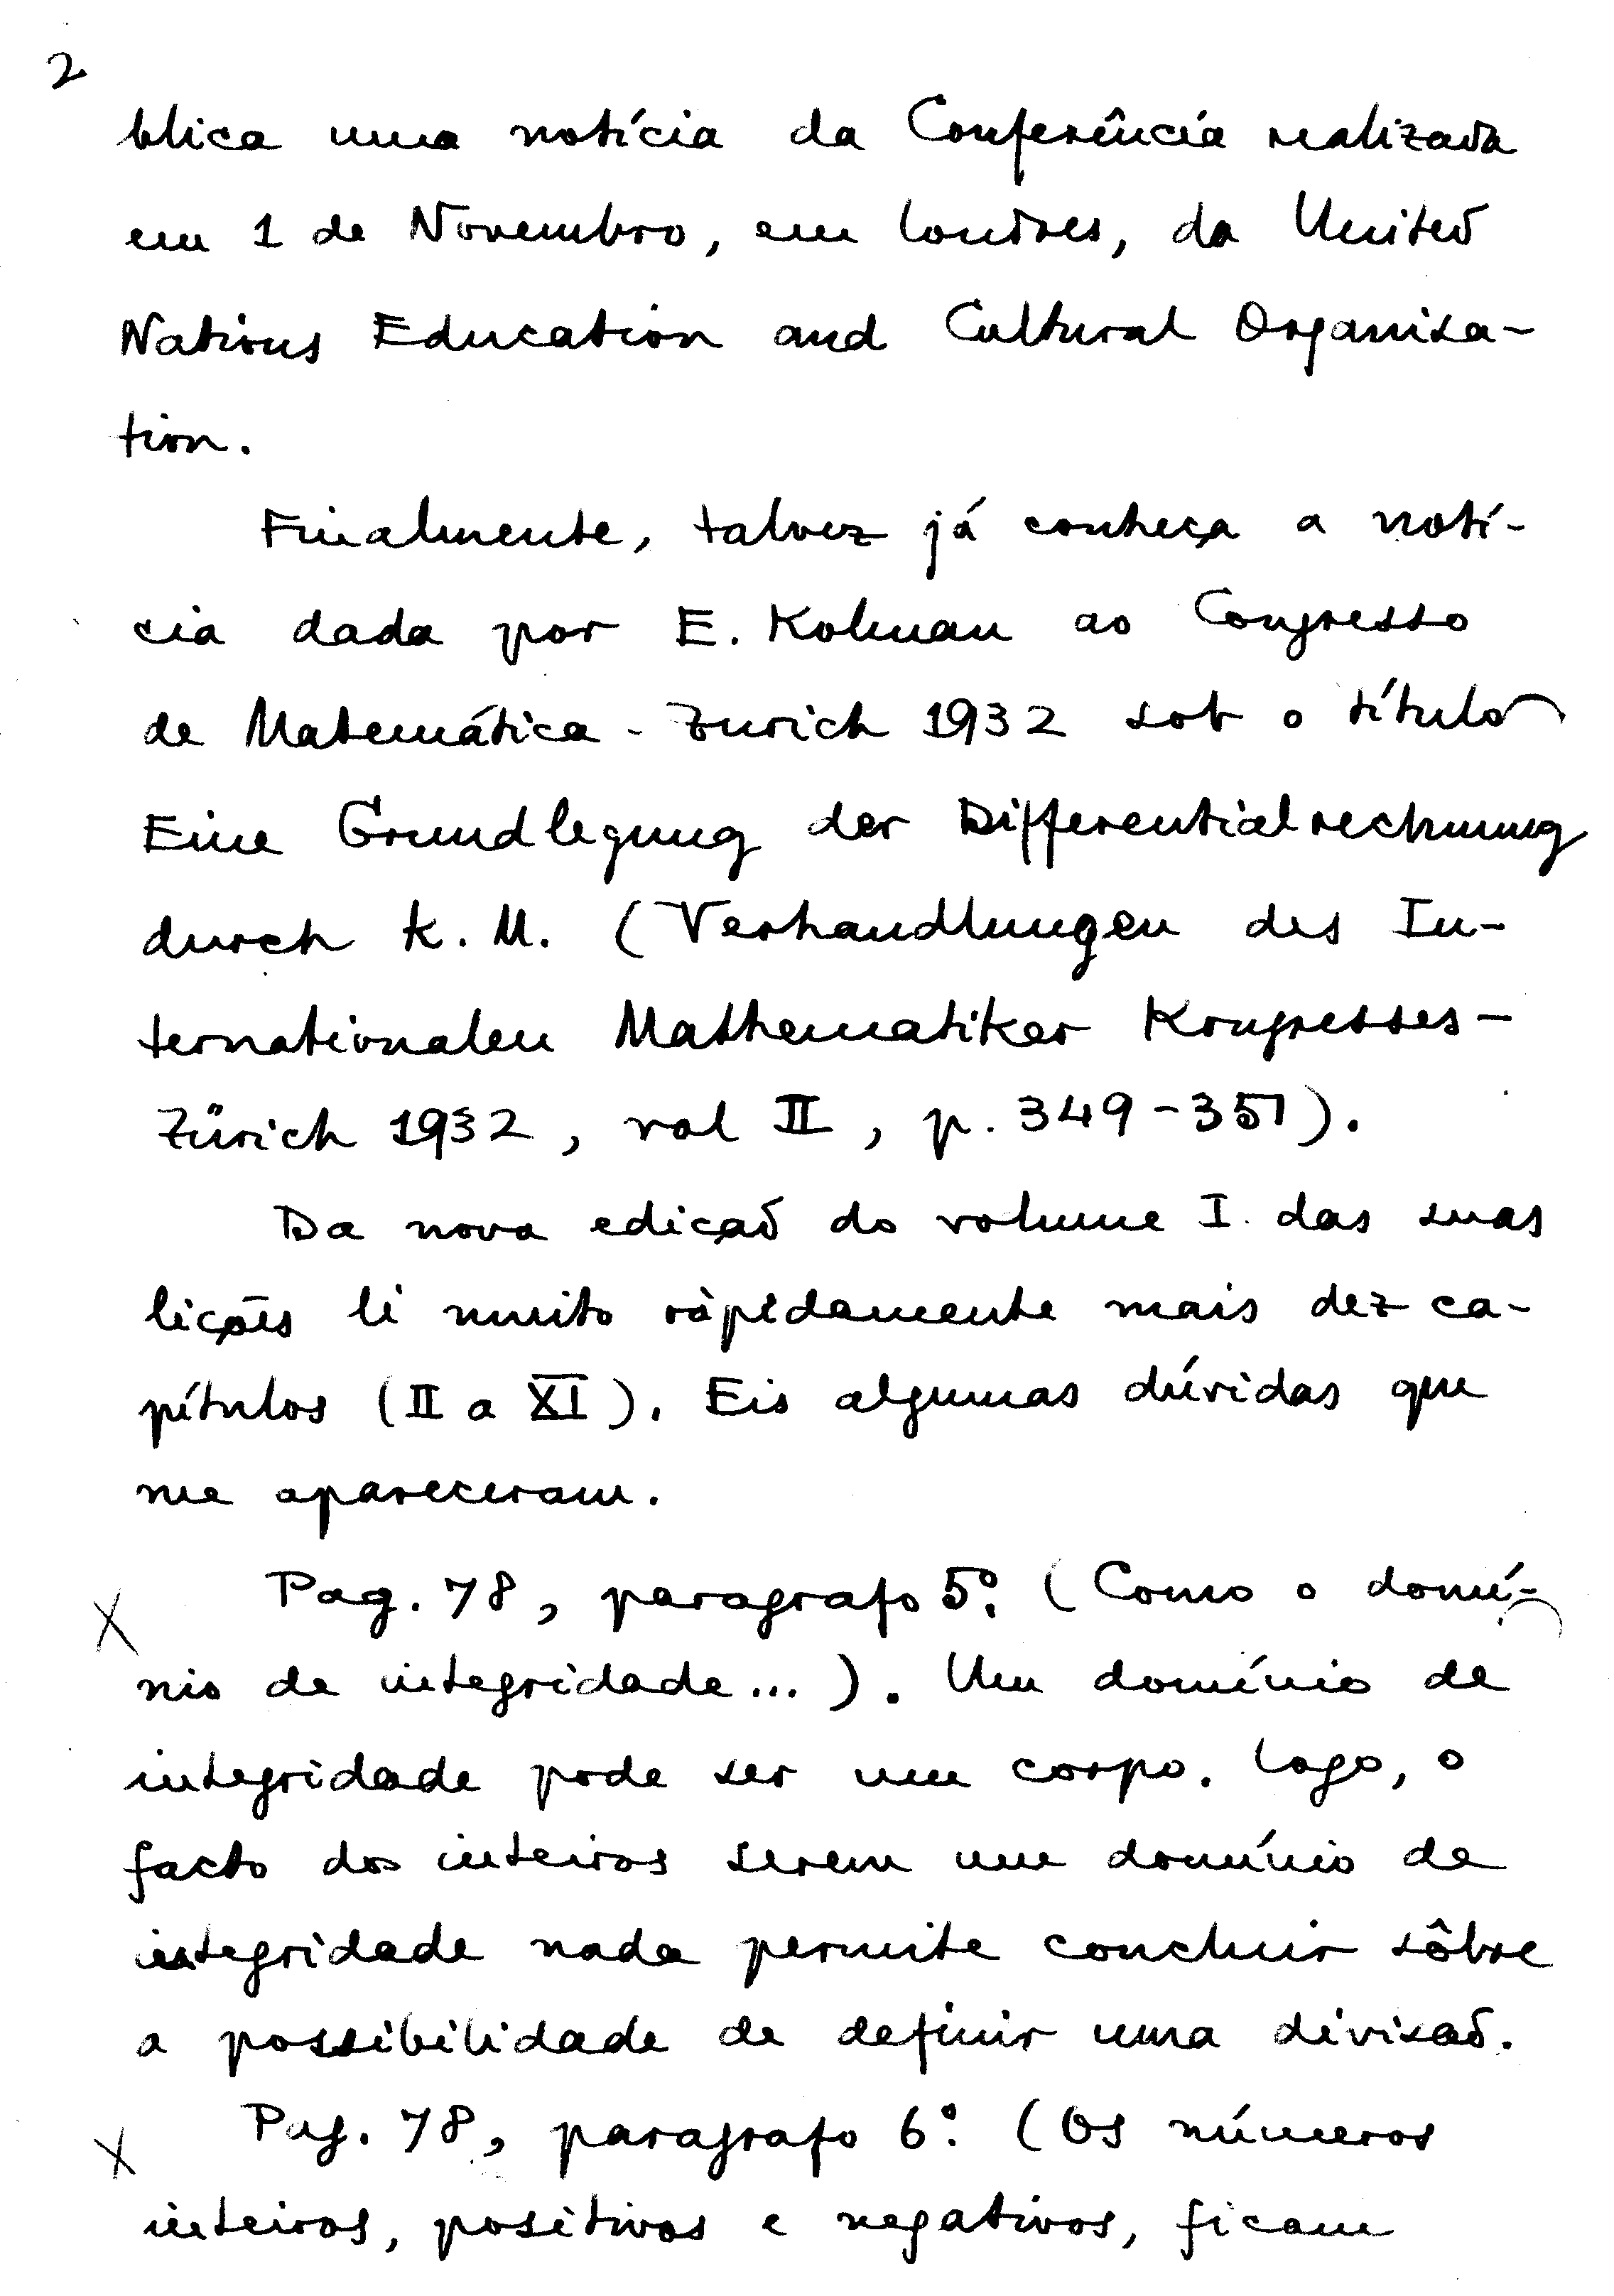 2
blica uma notícia da Conferência realizada
em 1 de Novembro, em Londres, da United
Nations Education and Cultural Organisa-
tion.
Finalmente, talvez já conheça a notí-
cia dada por E. Kolman ao Congresso
de Matemática - Zurich 1932 sob o título
Eine Grundlegung der Differentialrechnung
durch K. M. (Verhandlungen des In-
ternationalen Mathematiker Kongresses -
Zürich 1932, vol II, p. 349-351).
Da nova edição do volume I. das suas
lições li muito ràpidamente mais dez ca-
pítulos (II a XI). Eis algumas dúvidas que
me apareceram.
X Pag. 78, paragrafo 5º. (Como o domí-
nio de integridade...). Um domínio de
integridade pode ser um corpo. Logo, o
facto dos inteiros serem um domínio de
integridade nada permite concluir sôbre
a possibilidade de definir uma divisão.
X Pag. 78, paragrafo 6º. (Os números
inteiros, positivos e negativos, ficam